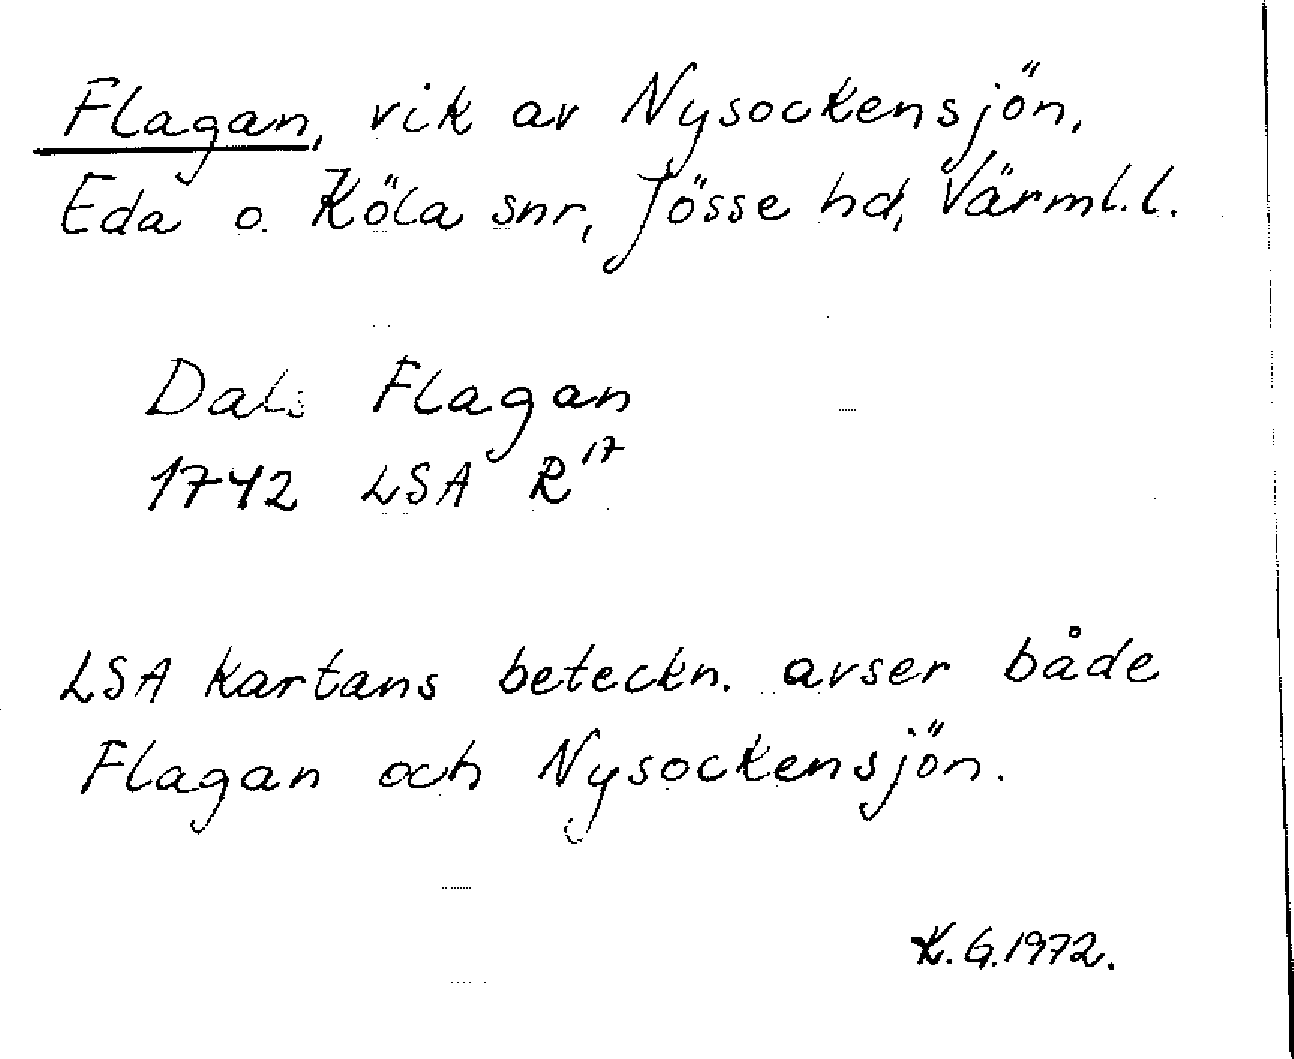 Flagan, vik av Nysockensjön,
Eda o. Köla snr, Jösse hd, Värml.l.
Dals Flagan
1742 LSA R17
LSA kartans beteckn. avser både
Flagan och Nysockensjön.
K.G.1972.